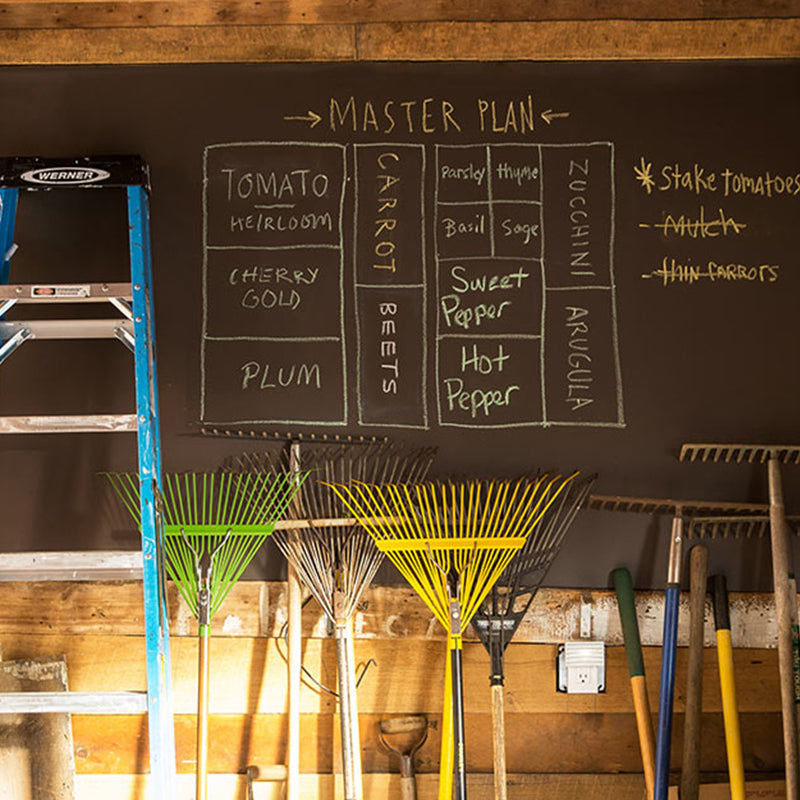 → MASTER PLAN ←
TOMATO
HEIRLOOM
CHERRY
GOLD
PLUM
CARROT
BEETS
Parsley
thyme
Basil
Sage
Sweet
Pepper
Hot
Pepper
ZUCCHINI
ARUGULA
* Stake tomatoes
- Mulch
- thin carrors
WERNER